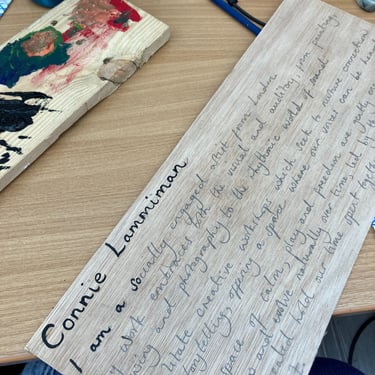 Connie Lammiman
I am a socially engaged artist from London
work embraces both the visual and auditory, from painting
and pornography to the rhythmic world of sound
creative workshops which seek to nurture connections
storytelling, offering a space where our voices can be heard
space of calm, play and freedom are greatly
and evolve naturally over time, led by
hold our time spent together